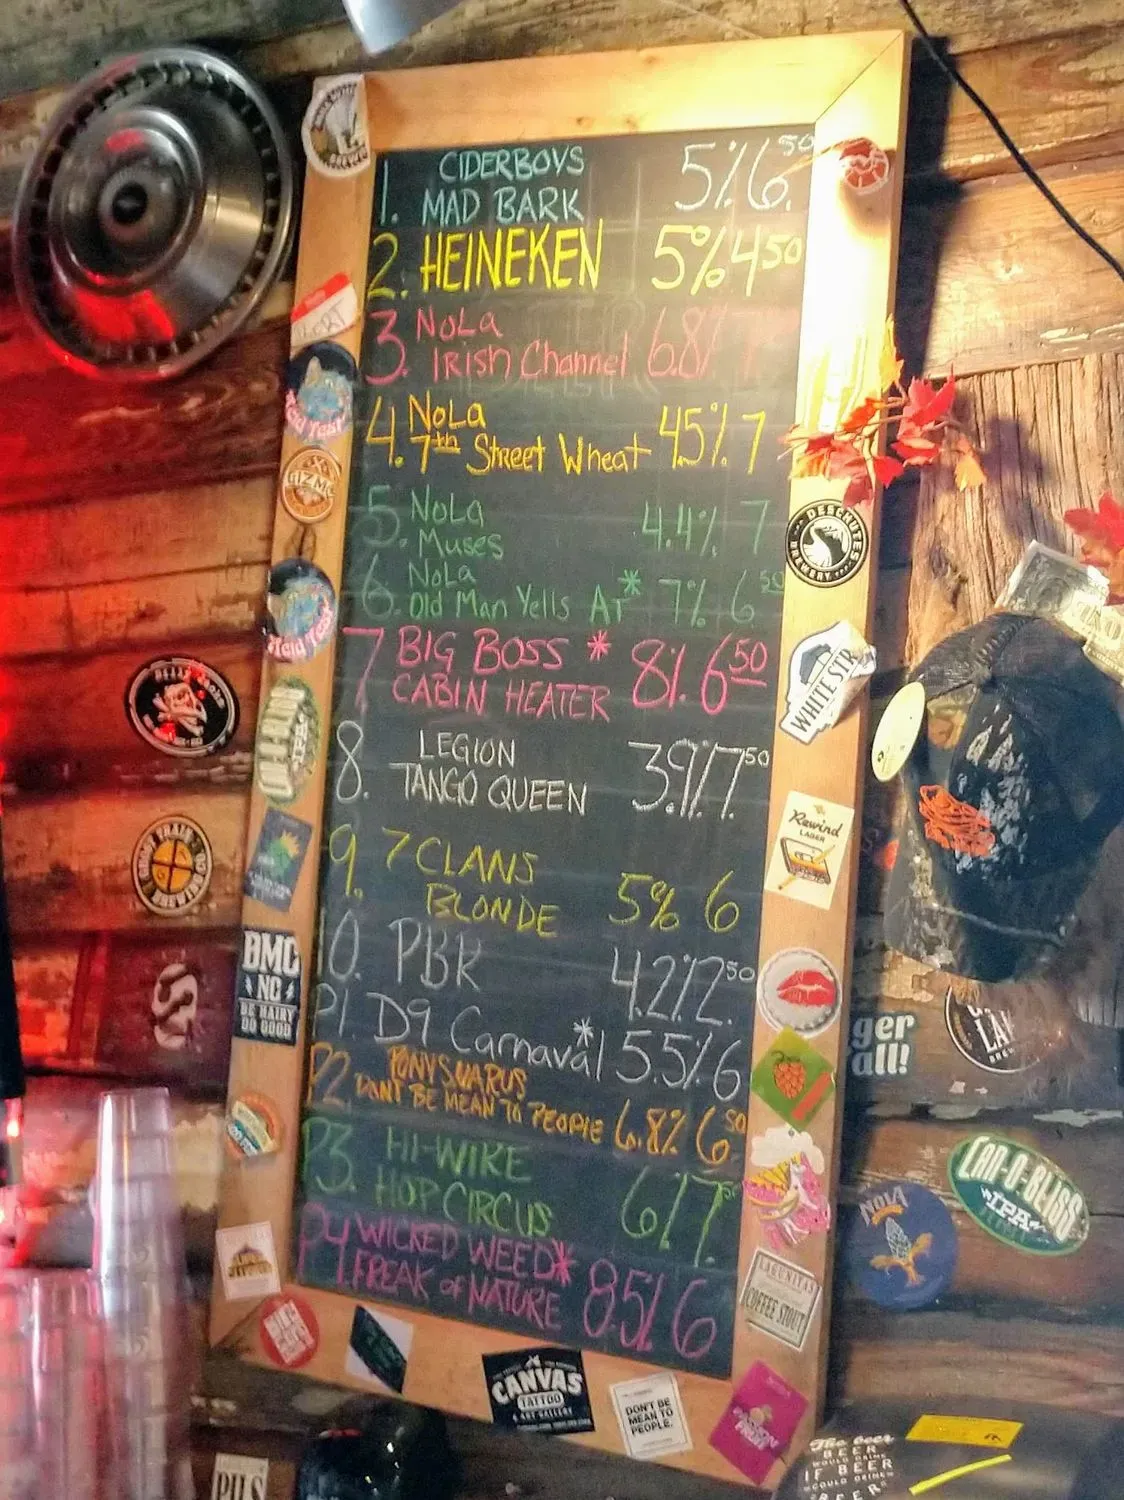 CIDERBOYS
1. MAD BARK 5% 6.50
2. HEINEKEN 5% 4.50
3. NOLA
IRISH Channel 6.8% 7
4. NOLA
7th Street Wheat 4.5% 7
5. NOLA
Muses 4.4% 7
6. NOLA
Old Man Yells AT* 7% 6.50
7 BIG BOSS *
CABIN HEATER 8% 6.50
8. LEGION
TANGO QUEEN 3.9% 7.50
9. 7 CLANS
BLONDE 5% 6
10. PBR 4.2% 2.50
P1 D9 Carnaval* 5.5% 6
P2 PONYSAURUS
DON'T BE MEAN TO PEOPLE 6.8% 6.50
P3. HI-WIRE
HOP CIRCUS 6% 7.
P4 WICKED WEED*
FREAK of NATURE 8.5% 6
DESCHUTES
BREWERY
WHITE STR
Rewind
LAGER
GIZMO
BMC
NC
BE HAIRY
DO GOOD
ger
all!
CAN-O-BLISS
IPA
NOLA
LAGUNITAS
COFFEE STOUT
CANVAS
TATTOO
& ART GALLERY
DON'T BE
MEAN TO
PEOPLE.
PASSION
FRUIT
The beer
BEER
WOULD DRINK
IF BEER
COULD DRINK
BEER
PILS